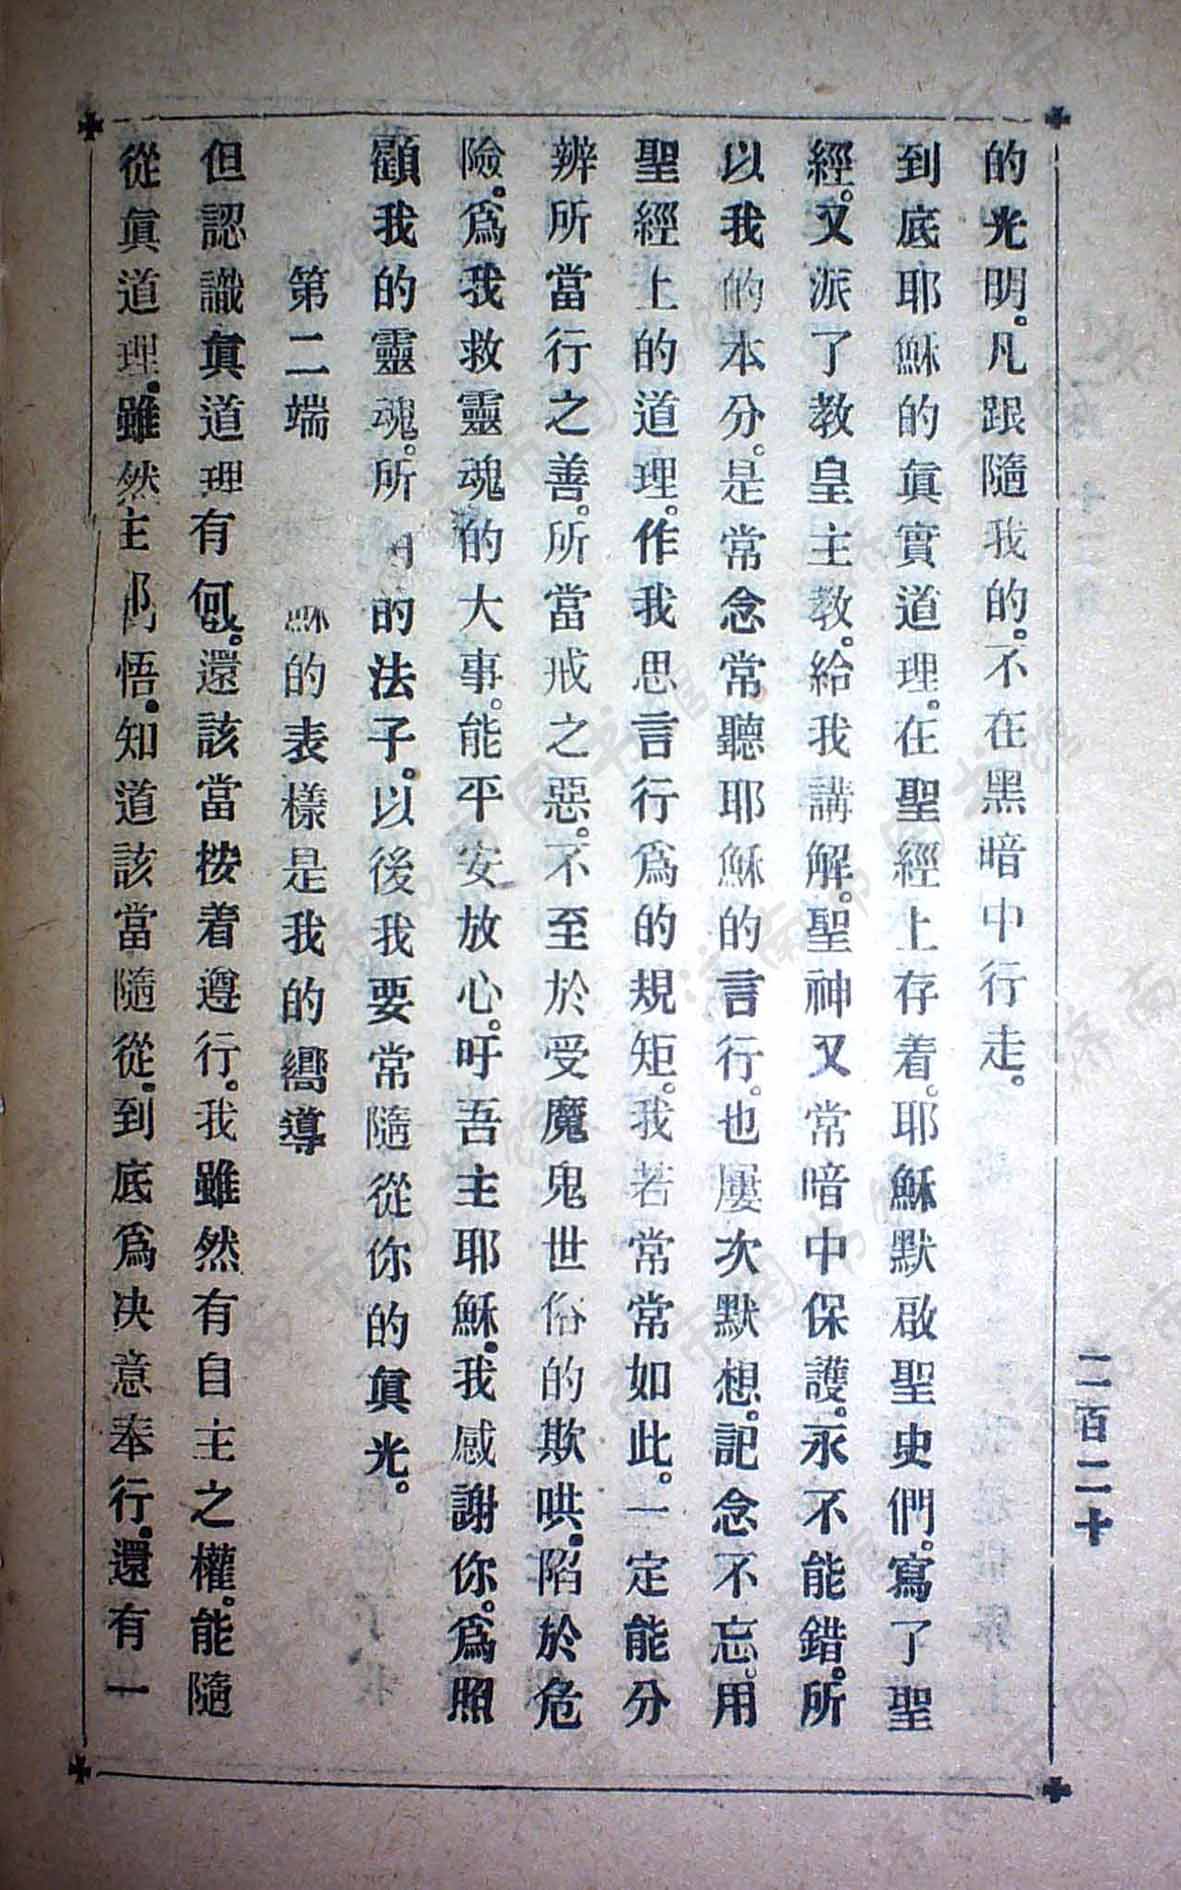 的光明。凡跟隨我的。不在黑暗中行走。
到底耶穌的眞實道理。在聖經上存着。耶穌默啟聖史們。寫了聖
經。又派了教皇主教。給我講解。聖神又常暗中保護。永不能錯。所
以我的本分。是常念常聽耶穌的言行。也屢次默想。記念不忘。用
聖經上的道理。作我思言行爲的規矩。我若常常如此。一定能分
辨所當行之善。所當戒之惡。不至於受魔鬼世俗的欺哄。陷於危
險。爲我救靈魂的大事。能平安放心。吁吾主耶穌。我感謝你。爲照
顧我的靈魂。所的法子。以後我要常隨從你的眞光。
第二端 穌的表樣是我的嚮導
但認識眞道理有何。還該當按着遵行。我雖然有自主之權。能隨
從眞道理。雖然主悟。知道該當隨從。到底爲决意奉行。還有一
二百二十